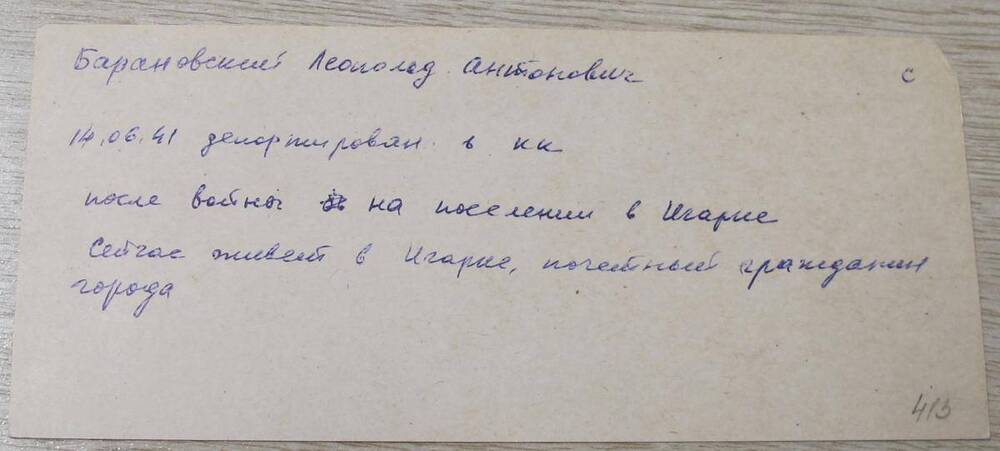 Барановский Леополад Антонович с
14.06.41 депортирован в кк
после войны на поселении в Игарке
Сейчас живет в Игарке, почетный гражданин
города
413